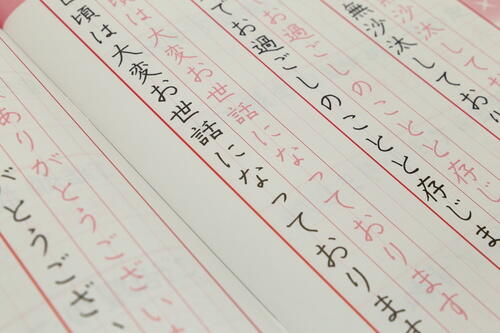 沙汰してお
無沙汰しており
お過ごしのことと存じ
てお過ごしのことと存じま
は大変お世話になっております
頃は大変お世話になっております
ありがとうござい
がとうござい